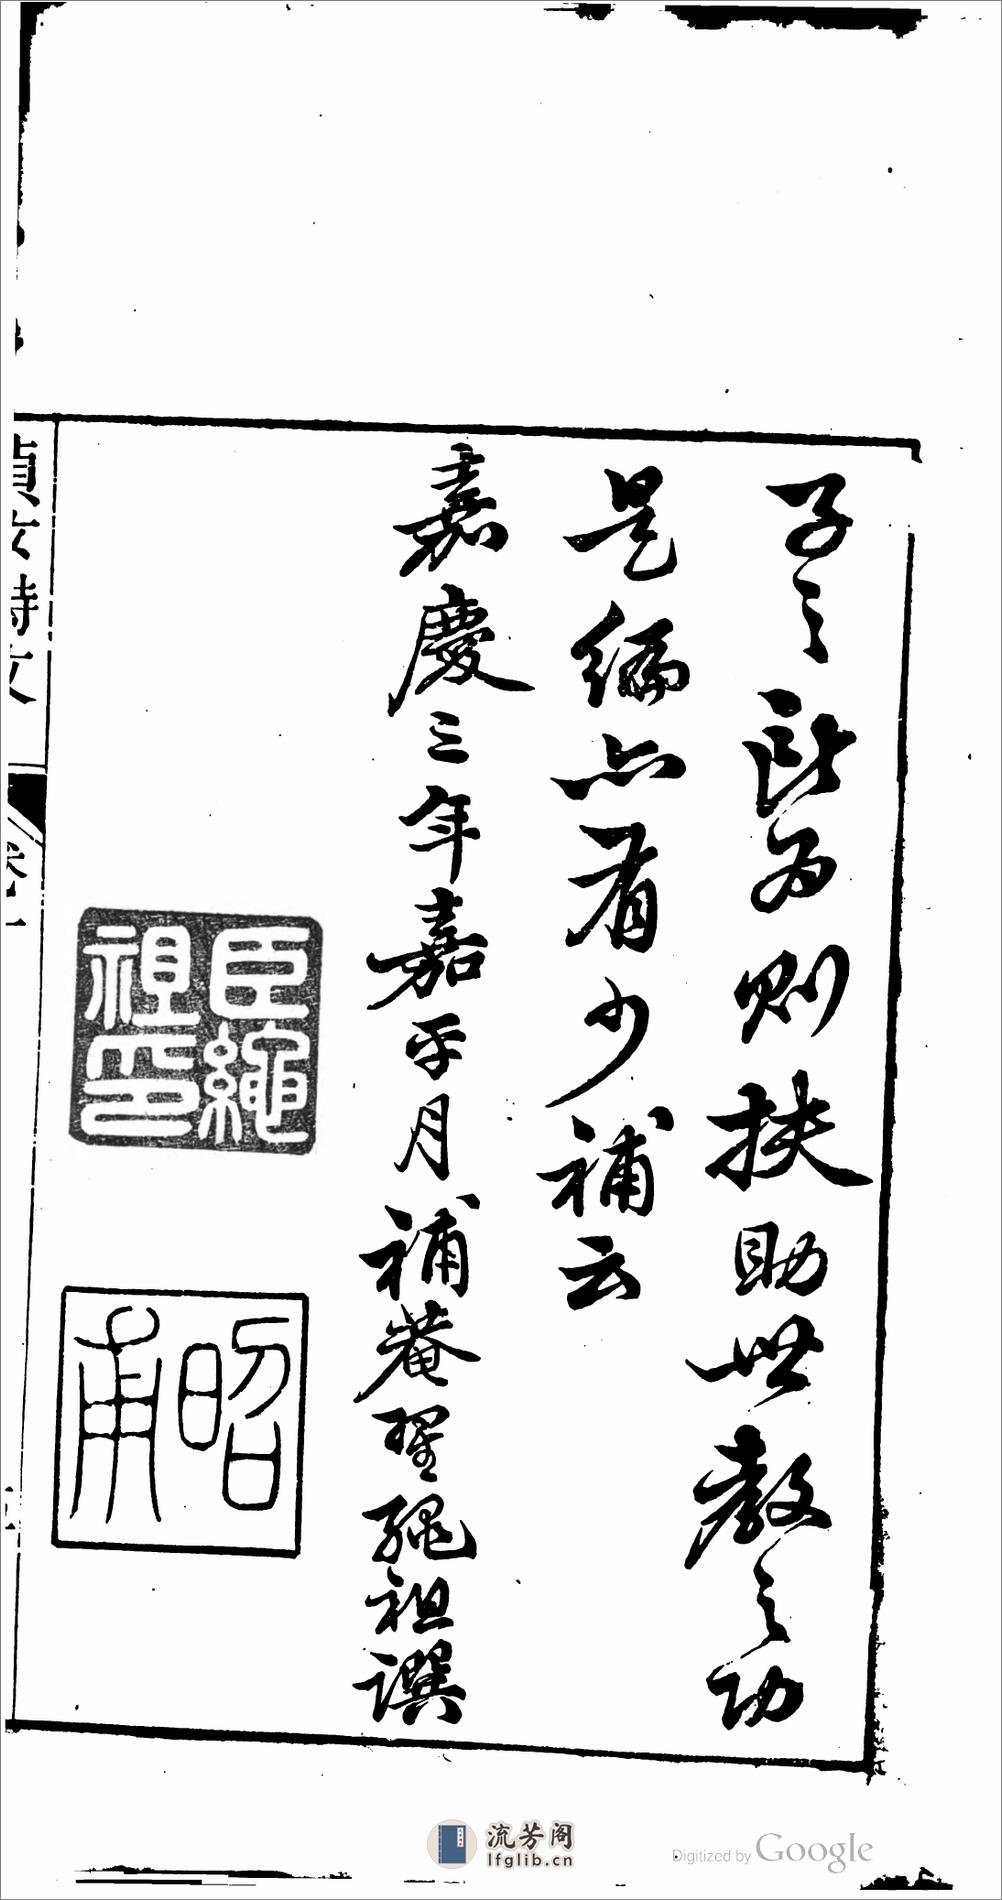 子之所為則扶助世教之功
是編亦有少補云
嘉慶三年嘉平月補菴瞿繩祖譔
臣繩祖印
昭甫
貞文詩文
流芳阁
lfglib.cn
Digitized by Google